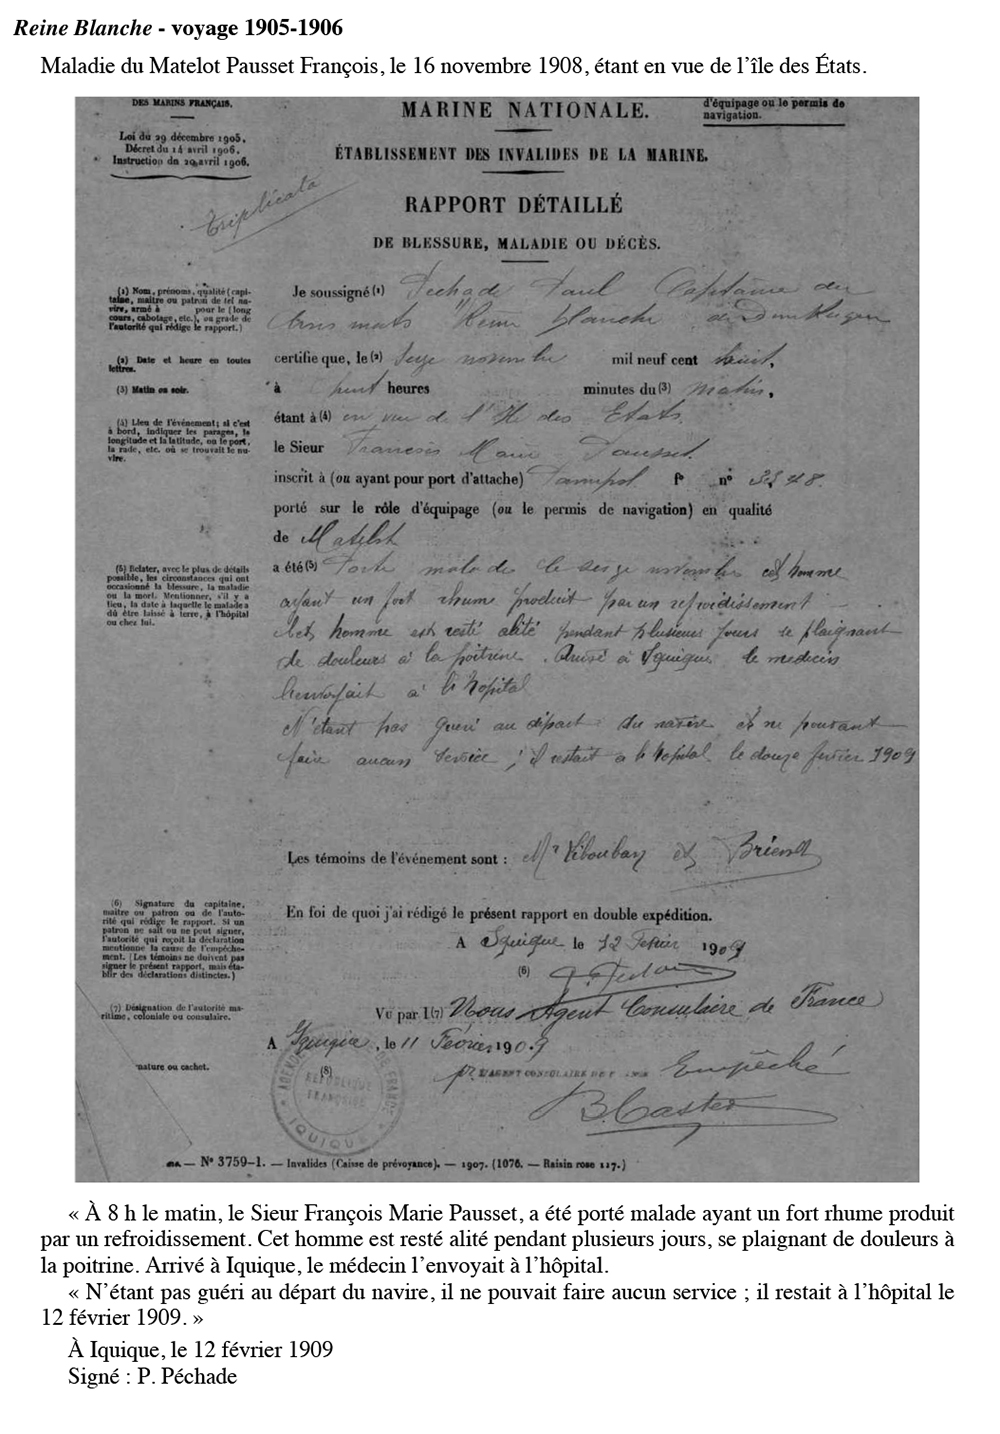 Reine Blanche - voyage 1905-1906
Maladie du Matelot Pausset François, le 16 novembre 1908, étant en vue de l’île des États.
DES MARINS FRANÇAIS.
Loi du 29 décembre 1905.
Décret du 14 avril 1906.
Instruction du 20 avril 1906.
Triplicata
MARINE NATIONALE.
d'équipage ou le permis de
navigation.
ÉTABLISSEMENT DES INVALIDES DE LA MARINE.
RAPPORT DÉTAILLÉ
DE BLESSURE, MALADIE OU DÉCÈS.
(1) Nom, prénoms, qualité (capi-
taine, maître ou patron de tel na-
vire, armé à pour le (long
cours, cabotage, etc.), ou grade de
l'autorité qui rédige le rapport.)
Je soussigné (1) Pechade Paul Capitaine du
trois mats "Reine blanche" de Dunkerque
(2) Date et heure en toutes
lettres.
certifie que, le (2) Seize novembre mil neuf cent huit,
(3) Matin ou soir.
à huit heures minutes du (3) matin,
(4) Lieu de l'événement; si c'est
à bord, indiquer les parages, la
longitude et la latitude, ou le port,
la rade, etc. où se trouvait le na-
vire.
étant à (4) en vue de l'Ile des Etats
le Sieur Francois Marie Pausset.
inscrit à (ou ayant pour port d'attache) Paimpol f° n° 3548.
porté sur le rôle d'équipage (ou le permis de navigation) en qualité
de Matelot
(5) Relater, avec le plus de détails
possible, les circonstances qui ont
occasionné la blessure, la maladie
ou la mort. Mentionner, s'il y a
lieu, la date à laquelle le malade a
dû être laissé à terre, à l'hôpital
ou chez lui.
a été (5) Porté malade le seize novembre cet homme
ayant un fort rhume produit par un refroidissement
Cet homme est resté alité pendant plusieurs jours se plaignant
de douleurs à la poitrine. Arrivé à Iquique le medecin
l'envoyait à l'hopital
N'étant pas gueri au départ du navire et ne pouvant
faire aucun service ; il restait a l'hopital le douze fevrier 1909
Les témoins de l'événement sont : Mr et
(6) Signature du capitaine,
maître ou patron ou de l'auto-
rité qui rédige le rapport. Si un
patron ne sait ou ne peut signer,
l'autorité qui reçoit la déclaration
mentionne la cause de l'empêche-
ment. (Les témoins ne doivent pas
signer le présent rapport, mais éta-
blir des déclarations distinctes.)
En foi de quoi j'ai rédigé le présent rapport en double expédition.
A Iquique le 12 Fevrier 1909
(6)
(7) Désignation de l'autorité ma-
ritime, coloniale ou consulaire.
Vu par I (7) Nous Agent Consulaire de France
A Iquique, le 11 Février 1909
nature ou cachet.
(8)
pr L'AGENT CONSULAIRE DE FRANCE Empêché
AGENCE DE FRANCE
RÉPUBLIQUE
FRANÇAISE
IQUIQUE
N° 3759-1. — Invalides (Caisse de prévoyance). — 1907. (1076. — Raisin rose 117.)
« À 8 h le matin, le Sieur François Marie Pausset, a été porté malade ayant un fort rhume produit
par un refroidissement. Cet homme est resté alité pendant plusieurs jours, se plaignant de douleurs à
la poitrine. Arrivé à Iquique, le médecin l’envoyait à l’hôpital.
« N’étant pas guéri au départ du navire, il ne pouvait faire aucun service ; il restait à l’hôpital le
12 février 1909. »
À Iquique, le 12 février 1909
Signé : P. Péchade